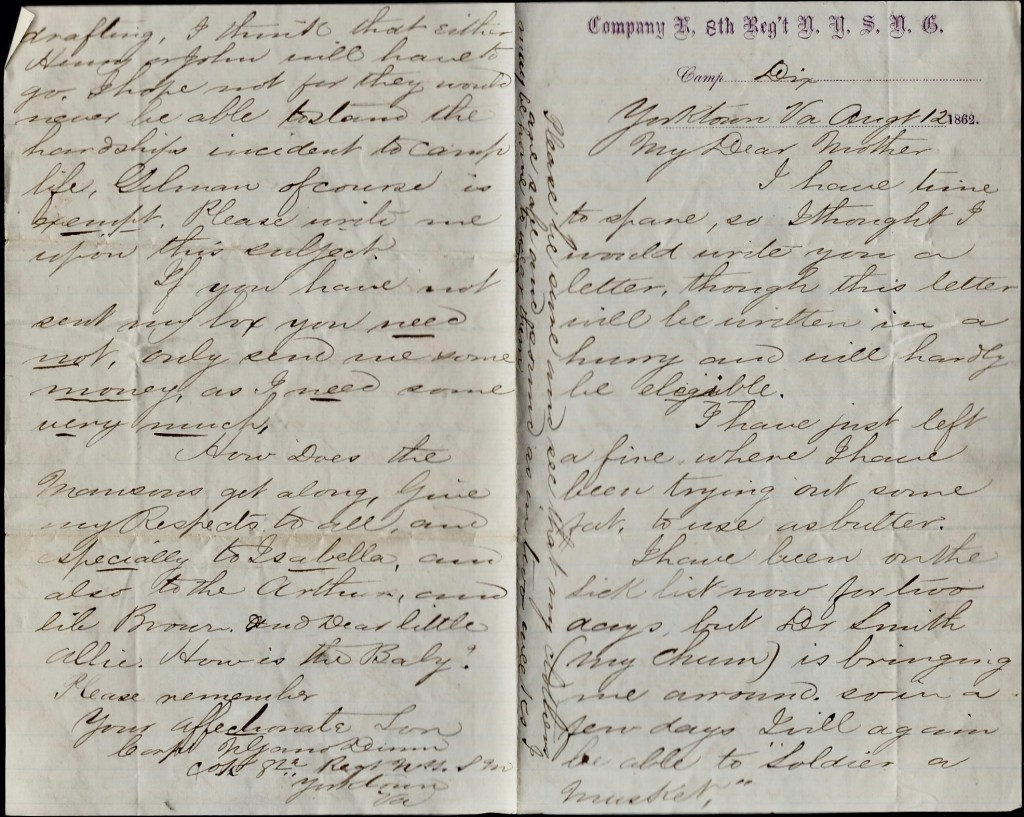 Company K, 8th Reg't N. Y. S. N. G.
Camp Dix
Yorktown Va Augt 12 1862.
My Dear Mother
I have time
to spare, so I thought I
would write you a
letter, though this letter
will be written in a
hurry and will hardly
be elegible.
I have just left
a fire, where I have
been trying out some
fat, to use as butter.
I have been on the
sick list now for two
days, but Dr Smith
(my chum) is bringing
me arround. so in a
few days I will again
be able to "Soldier a
Musket,"
drafting, I think that either
Henry or John will have to
go. I hope not for they would
never be able to stand the
hardships incident to camp
life, Gilman of course is
exempt. Please write me
upon this subject.
If you have not
sent my box you need
not, only send me some
money, as I need some
very much,
How Does the
Mansons get along, Give
my Respects to all, and
specially to Isabella, and
also to the Arthur, and
lib Brown. And Dear little
Allie. How is the Baby?
Please remember
Your affectionate Son
Corpl Dunn
8th Regt N.Y. S M
Yorktown
Va
Please be sure and see that my clothing
are safe and sound as in two weeks I
may be home to wear them